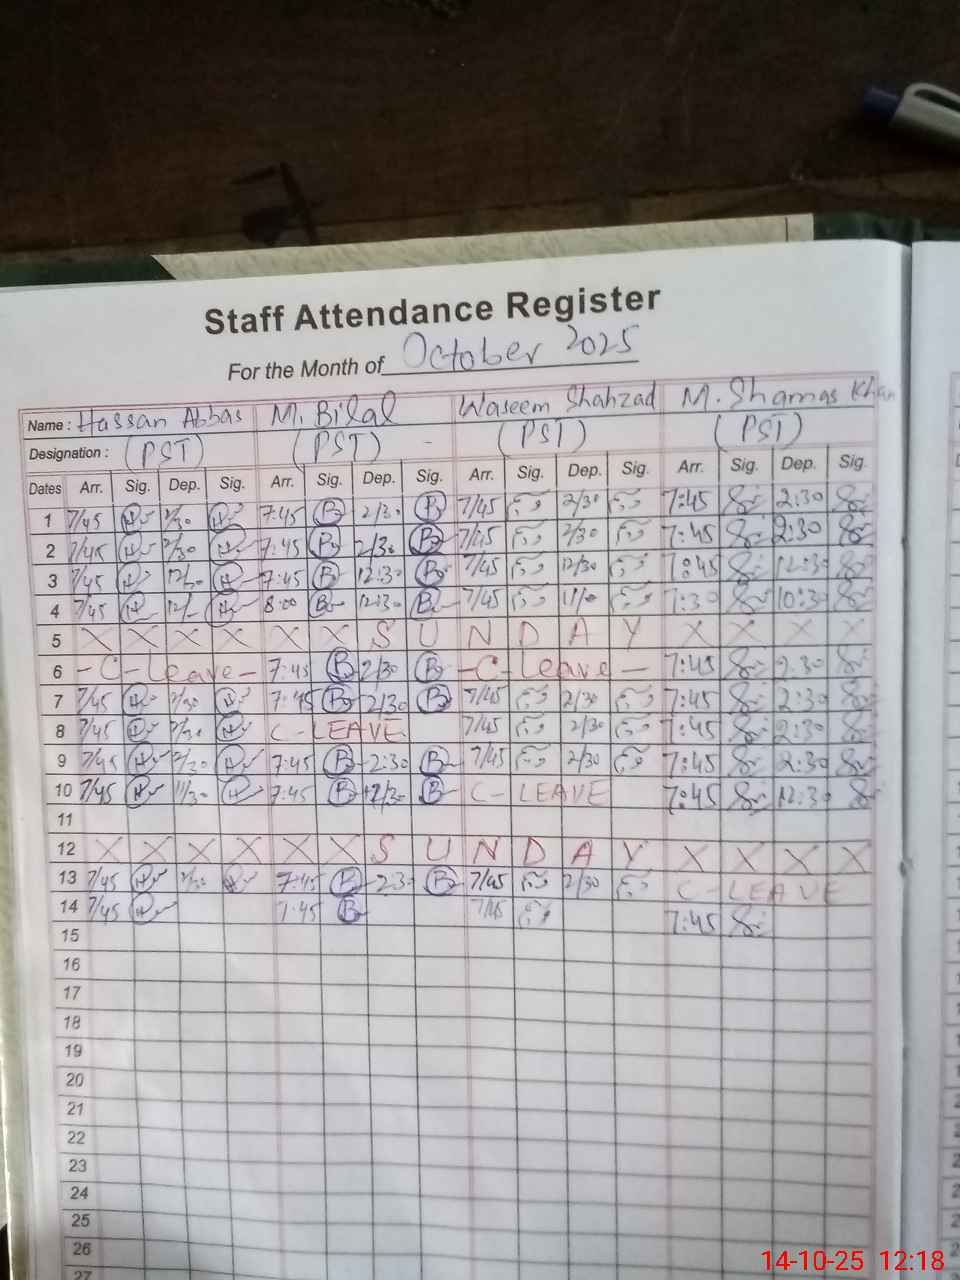 Staff Attendance Register
For the Month of October 2025
Name : Hassan Abbas M. Bilal Waseem Shahzad M. Shamas Khan
Designation : (PST) (PST) - (PST) (PST)
Dates Arr. Sig. Dep. Sig. Arr. Sig. Dep. Sig. Arr. Sig. Dep. Sig. Arr. Sig. Dep. Sig.
1 7/45 H 2/30 H 7:45 B 2/30 B 7/45 2/30 7:45 2:30
2 7/45 H 2/30 H 7:45 B 2/30 B 7/45 2/30 7:45 2:30
3 7/45 H H 7:45 B 12:30 B 7/45 12/30 7:45 12:30
4 7/45 H H 8:00 B 12:30 B 7/45 7:30 10:30
5 X X X X X X S U N D A Y X X X X
6 - C - Leave - 7:45 B 2/30 B - C - Leave - 7:45 2:30
7 7/45 H 2/30 H 7:45 B 2/30 B 7/45 2/30 7:45 2:30
8 7/45 H 2/30 H C - LEAVE 7/45 2/30 7:45 2:30
9 7/45 H 2/30 H 7:45 B 2:30 B 7/45 2/30 7:45 2:30
10 7/45 H 11/30 H 7:45 B B C - LEAVE 7:45 12:30
11
12 X X X X X X S U N D A Y X X X X
13 7/45 H 2/30 H 7:45 B 2:30 B 7/45 2/30 C - LEAVE
14 7/45 H 7:45 B 7/45 7:45
15
16
17
18
19
20
21
22
23
24
25
26
27
14-10-25 12:18